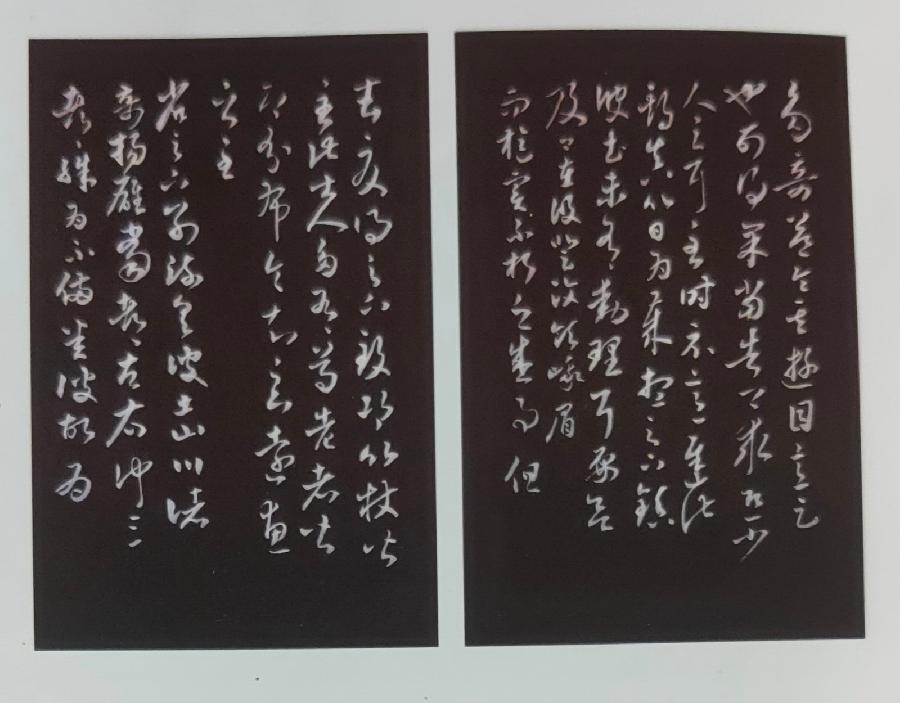 去夏得足下致邛竹杖皆
至此士人多有尊老者皆
即分布令知足下遠惠
之至
省足下別疏具彼土山川諸
奇揚雄蜀都左太沖三
都殊為不備悉彼故為
多奇益令其遊目意足
也可得果當告卿求迎少
人足耳至時示意遲此
期真以日為歲想足下鎮
彼土未有動理耳要欲
及卿在彼登汶領峨眉
而旋實不朽之盛事但